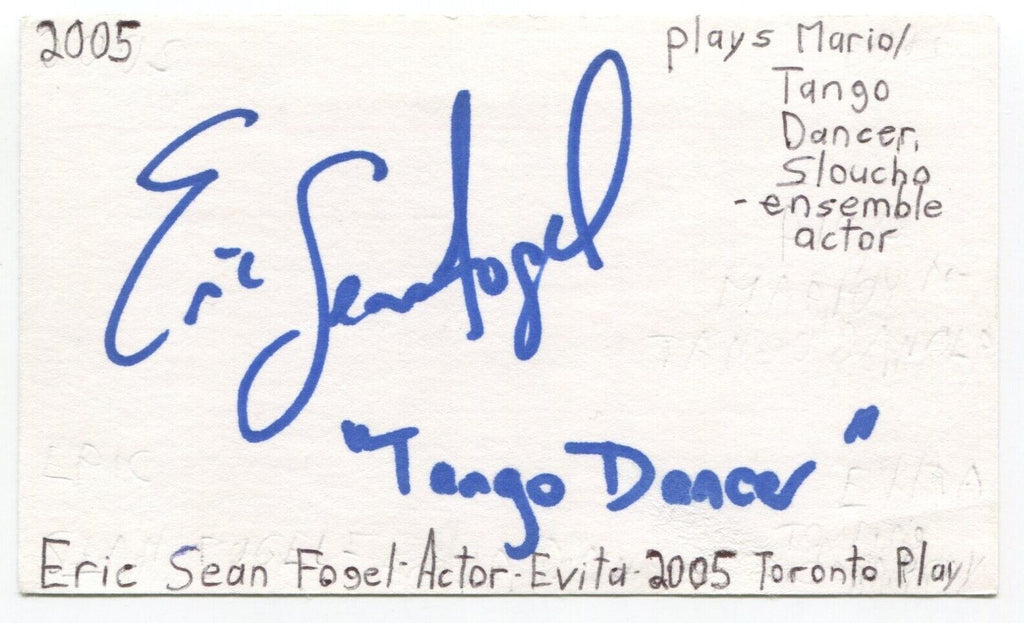 2005
plays Mario/
Tango
Dancer,
Sloucho
-ensemble
actor
Eric Sean Fogel
"Tango Dancer"
Eric Sean Fogel-Actor-Evita-2005 Toronto Play